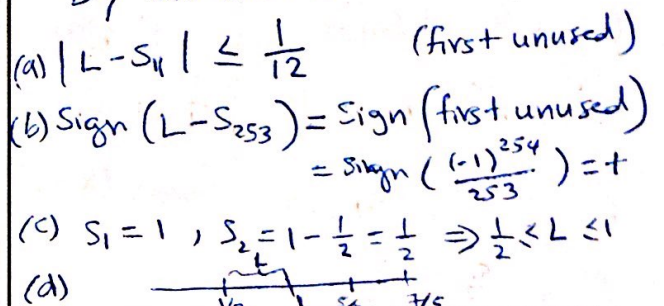 (a) | L - S₁₁ | ≤ 1/12 (first unused)
(b) Sign (L - S₂₅₃) = Sign (first unused)
= Sign ( (-1)²⁵⁴/253 ) = +
(c) S₁ = 1 , S₂ = 1 - 1/2 = 1/2 ⇒ 1/2 ≤ L ≤ 1
(d)
L